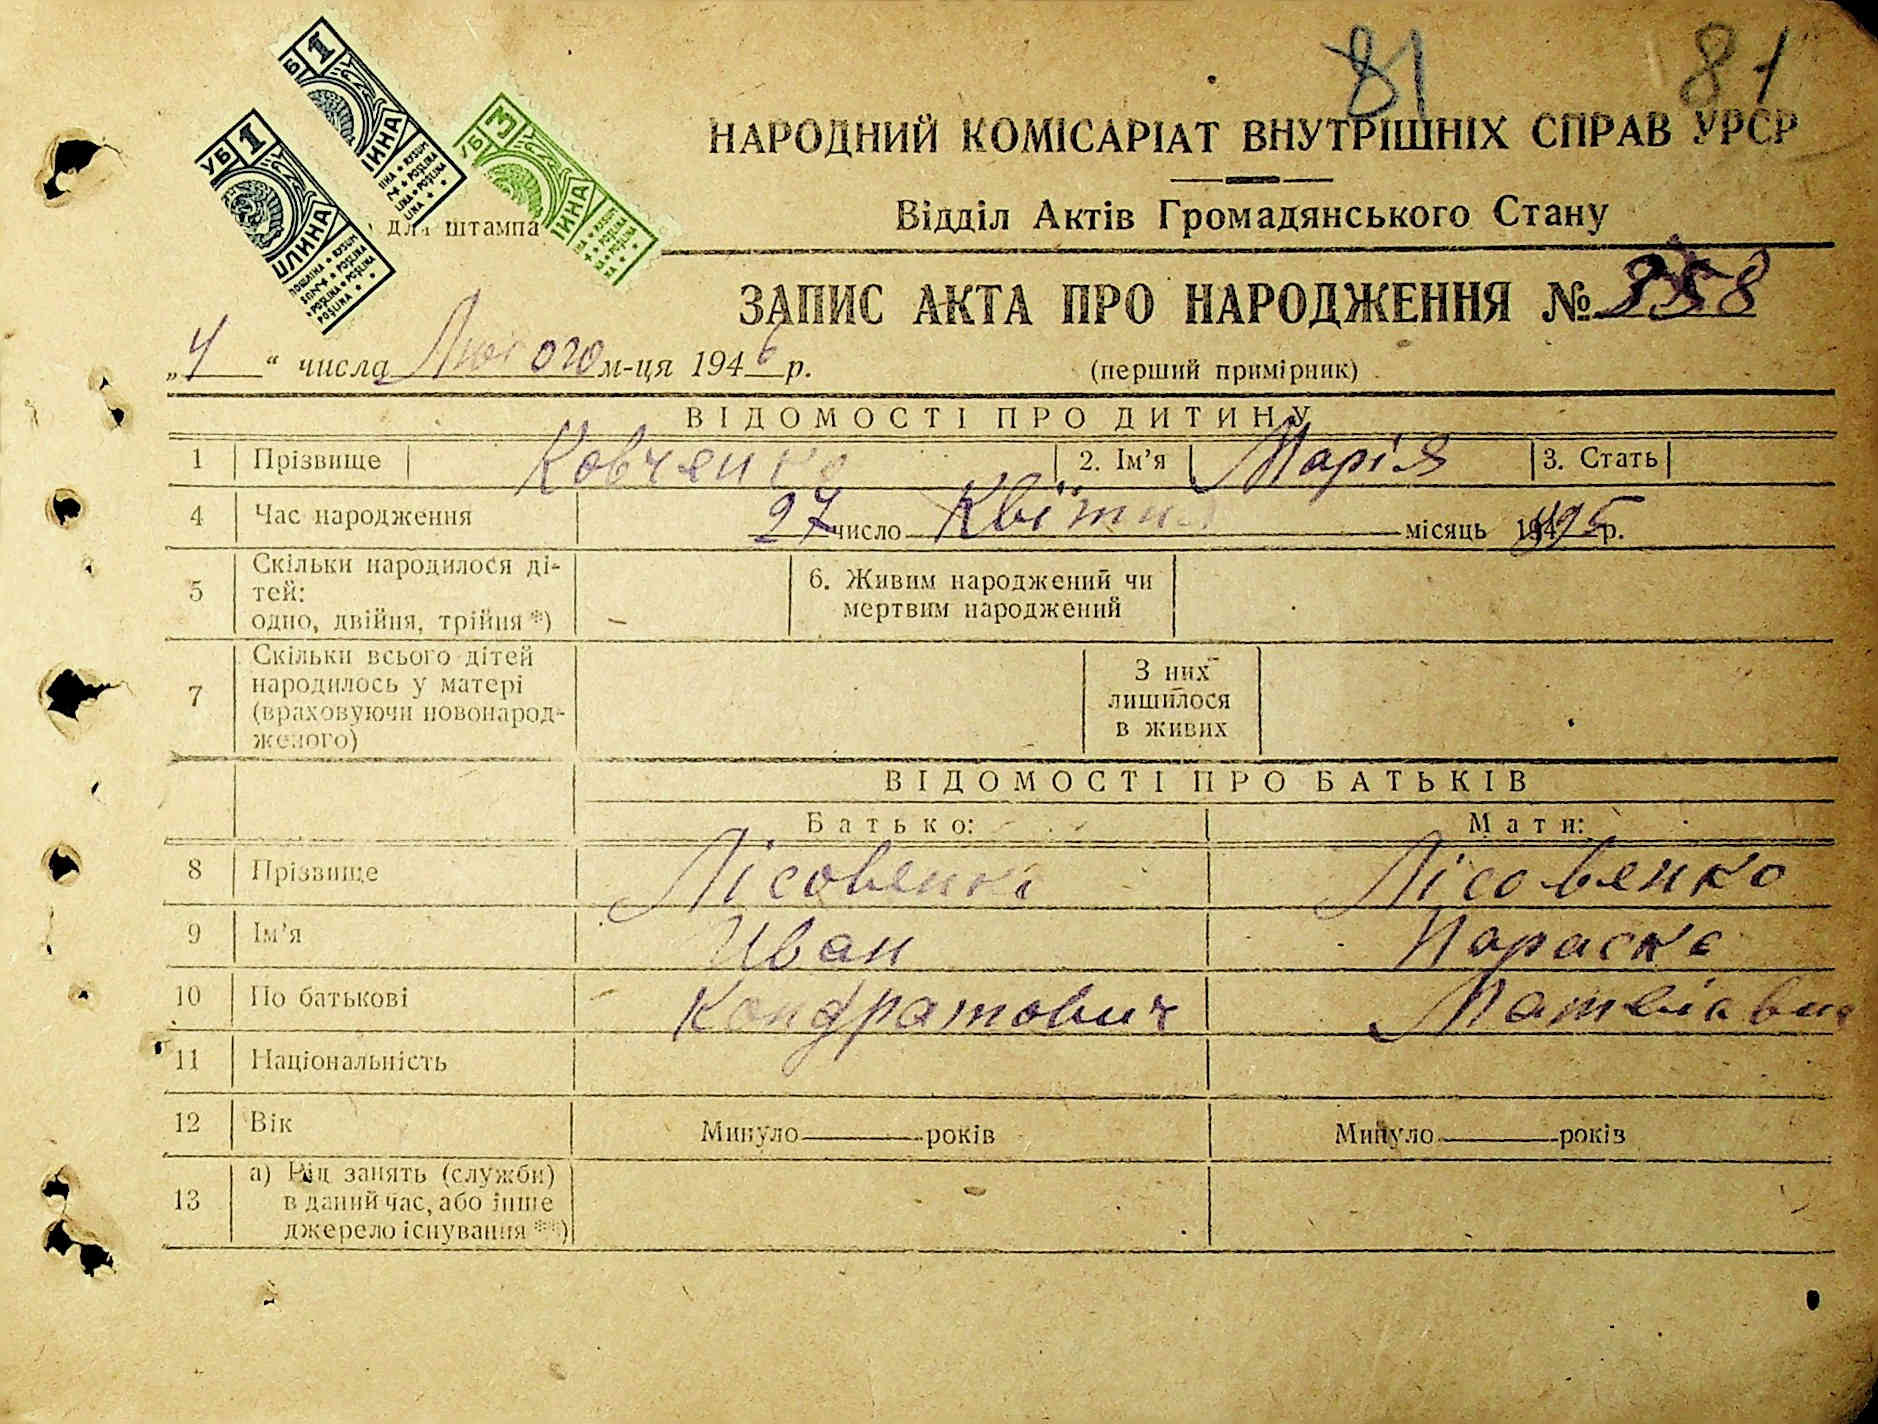 81 81
НАРОДНИЙ КОМІСАРІАТ ВНУТРІШНІХ СПРАВ УРСР
Відділ Актів Громадянського Стану
для штампа
ЗАПИС АКТА ПРО НАРОДЖЕННЯ № 358
„4“ числа Лютого м-ця 1946 р.
(перший примірник)
ВІДОМОСТІ ПРО ДИТИНУ
1 Прізвище Ковченко 2. Ім’я Марія 3. Стать
4 Час народження 27 число Квітня місяць р.
5 Скільки народилося ді-
тей:
одно, двійня, трійня *) –
6. Живим народжений чи
мертвим народжений
7 Скільки всього дітей
народилось у матері
(враховуючи новонарод-
женого)
З них
лишилося
в живих
ВІДОМОСТІ ПРО БАТЬКІВ
Батько: Мати:
8 Прізвище Лісовенко Лісовенко
9 Ім’я Иван Параска
10 По батькові Кондратович
11 Національність
12 Вік Минуло років Минуло років
13 а) Рід занять (служби)
в даний час, або інше
джерело існування **)